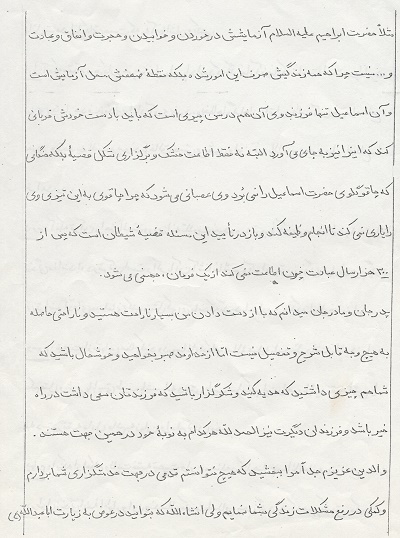 مثلاً حضرت ابراهیم علیه السلام آزمایشش در خوردن و خوابیدن و هجرت و انفاق و عبادت
و... نیست چرا که همه زندگیش صرف این امور شده بلکه نقطهٔ ضعفش محل آزمایش است
و آن اسماعیل تنها فرزند وی آن هم در سن پیری است که باید با دست خودش قربانی
کند که این را نیز به جای می آورد البته نه فقط اطاعت خشک و برگزاری شکل قضیه بلکه هنگامی
که چاقو گلوی حضرت اسماعیل را نمی بُرد وی عصبانی می شود که چرا چاقوی به این تیزی وی
را یاری نمی کند تا انجام وظیفه کند و باز در تأیید این مسئله قضیهٔ شیطان است که پس از
هزار سال عبادت چون اطاعت نمی کند از یک فرمان، جهنمی می شود.
پدر جان و مادر جان میدانم که با از دست دادن من بسیار ناراحت هستید و ناراحتی حاصله
به هیچ وجه قابل شرح و تفصیل نیست اما از خداوند صبر بخواهید و خوشحال باشید که
شما هم چیزی داشتید که هدیه کنید و شکرگزار باشید که فرزندتان سعی داشت در راه
خیر باشد و فرزندان دیگرت نیز الحمد لله هر کدام به نوبهٔ خود در همین جهت هستند.
والدین عزیزم جداً مرا ببخشید که هیچ نتوانستم قدمی در جهت خدمتگزاری شما بردارم
و کمکی در رفع مشکلات زندگی شما نمایم ولی انشاءالله که بتوانید در عوض به زیارت اباعبدالله